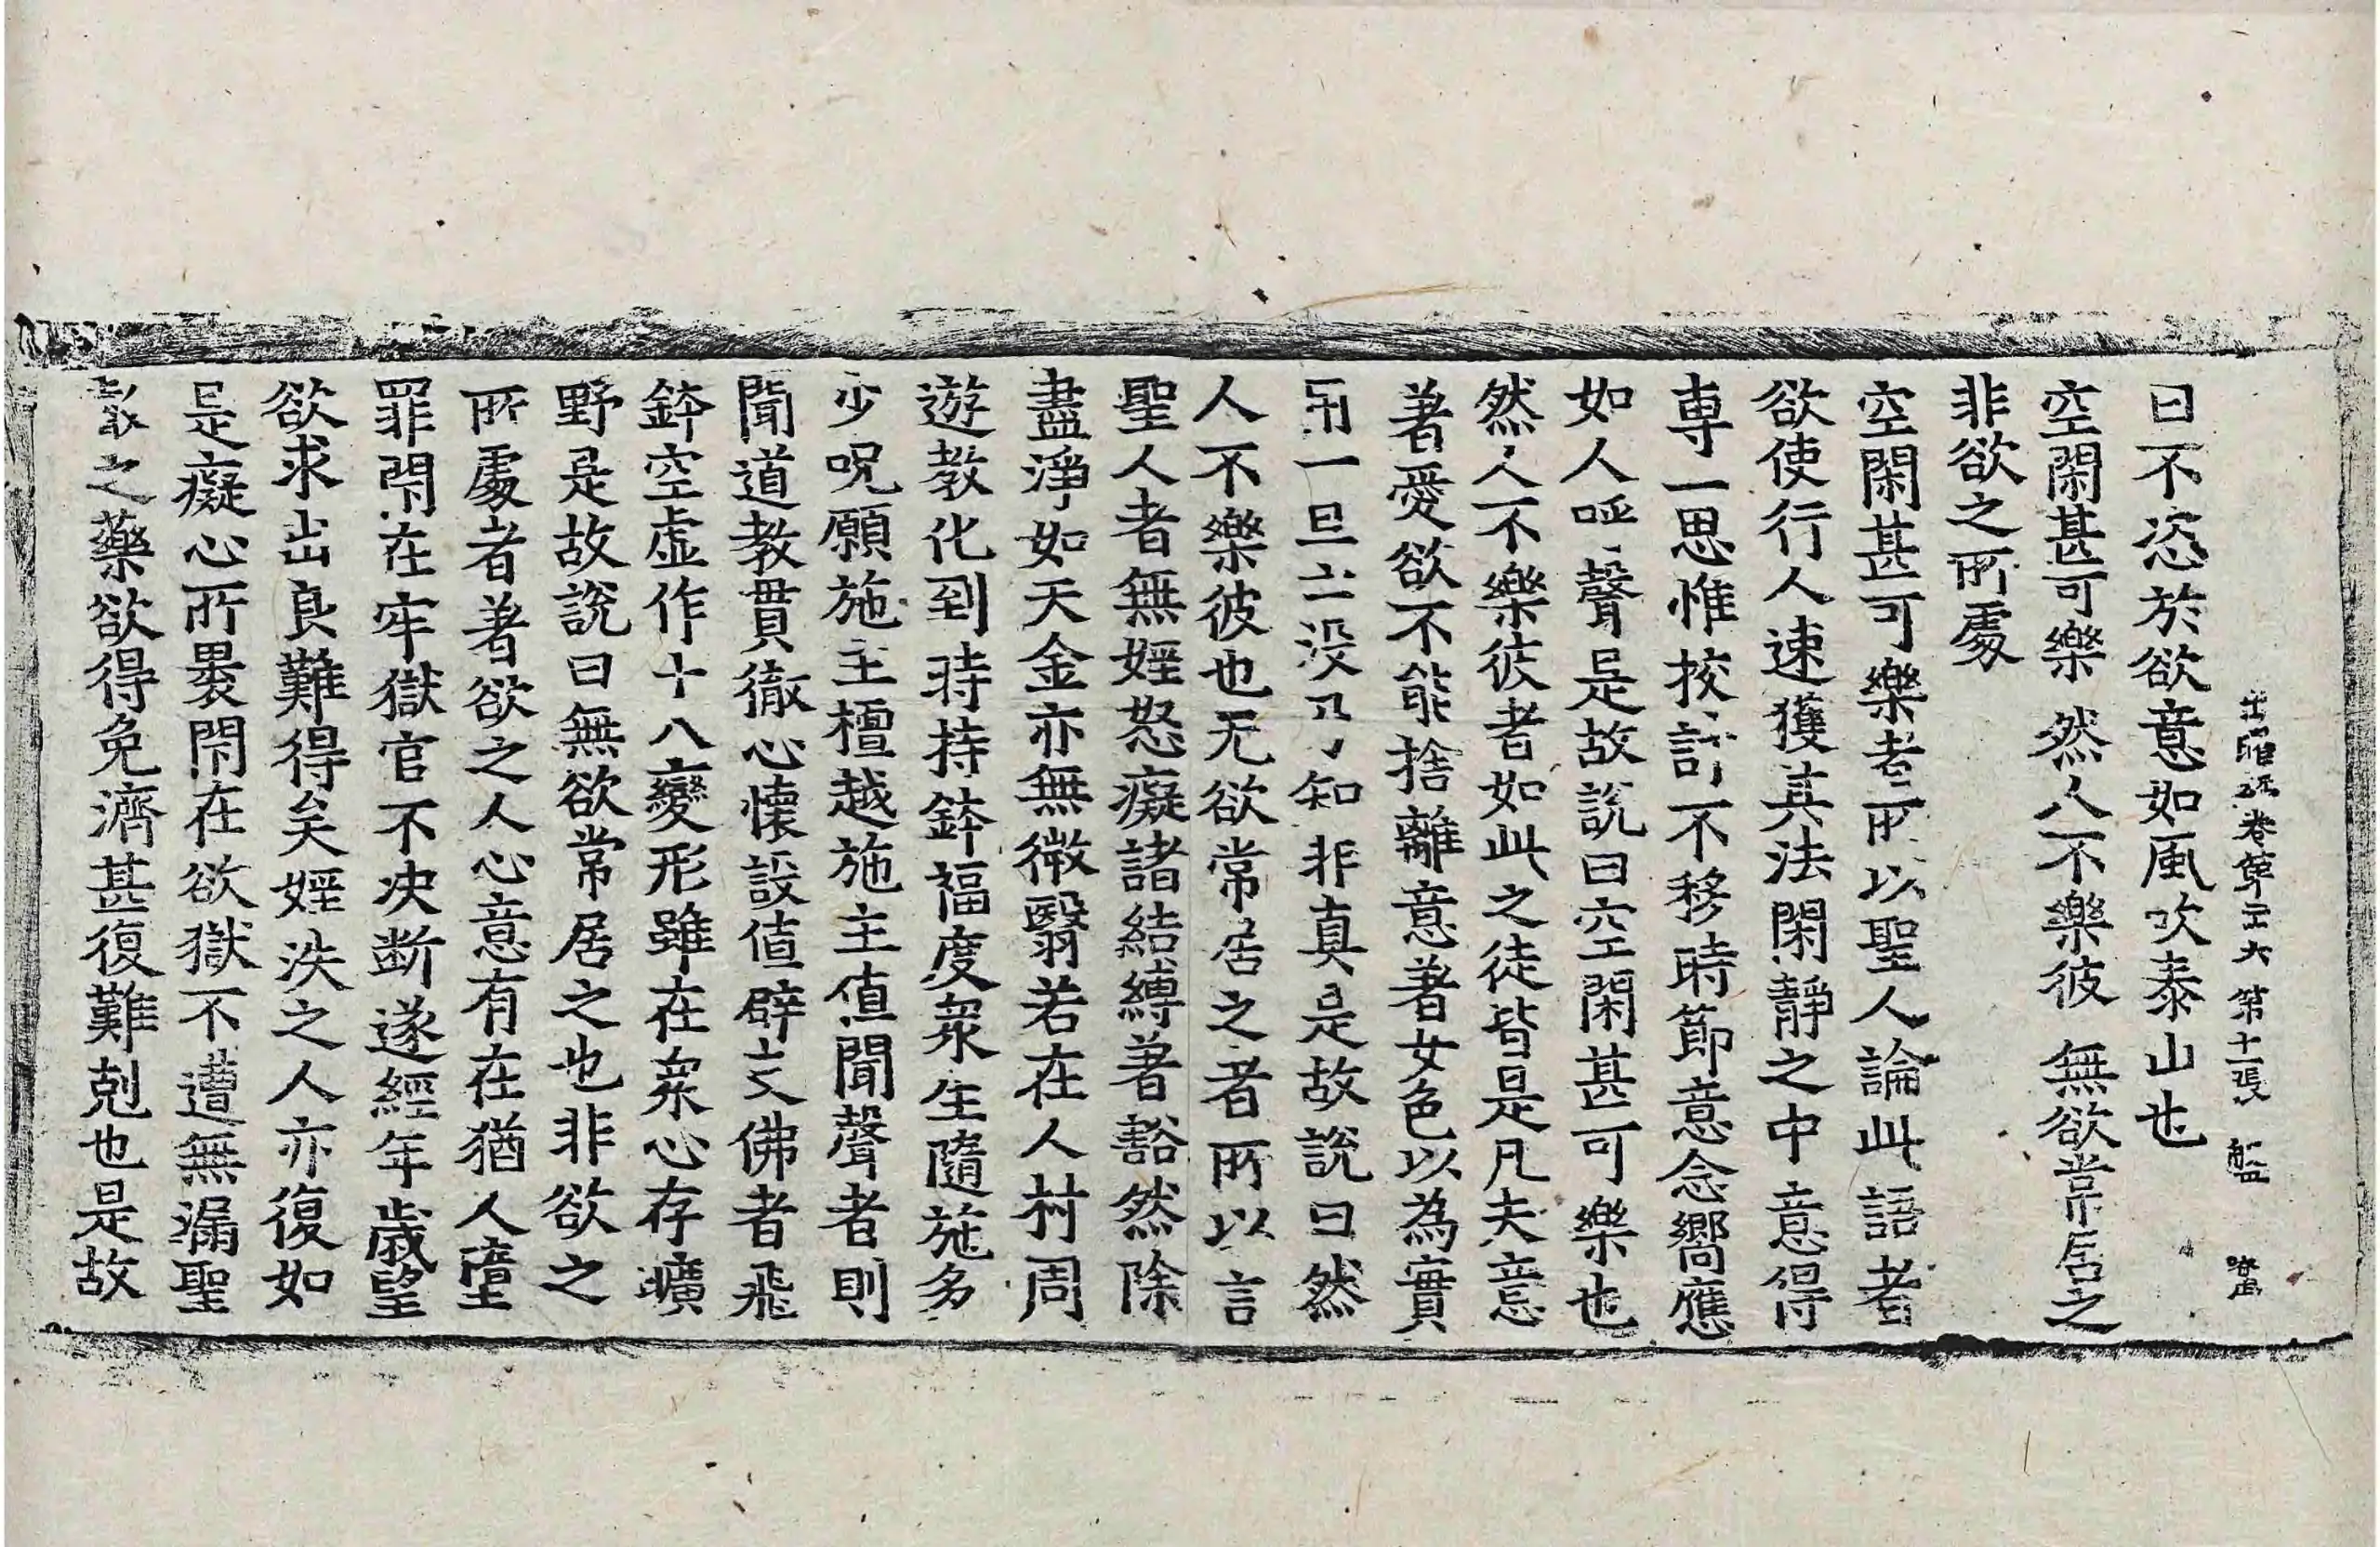 出曜經卷第二十六 第十一張 盤
曰不恣於欲意如風吹泰山也
空閑甚可樂 然人不樂彼 無欲常居之
非欲之所處
空閑甚可樂者所以聖人論此語者
欲使行人速獲其法閑靜之中意得
專一思惟挍計不移時節意念嚮應
如人呼聲是故說曰空閑甚可樂也
然人不樂彼者如此之徒皆是凡夫意
著愛欲不能捨離意著女色以為寶
用一旦亡没乃知非真是故說曰然
人不樂彼也无欲常居之者所以言
聖人者無婬怒癡諸結縛著豁然除
盡淨如天金亦無微翳若在人村周
遊教化到時持鉢福度衆生隨施多
少呪願施主檀越施主值聞聲者則
聞道教貫徹心懷設值辟支佛者飛
鉢空虛作十八變形雖在衆心存曠
野是故說曰無欲常居之也非欲之
所處者著欲之人心意有在猶人墮
罪閇在牢獄官不决断遂經年歲望
欲求出良難得矣婬泆之人亦復如
是癡心所褁閇在欲獄不遭無漏聖
之藥欲得免濟甚復難剋也是故